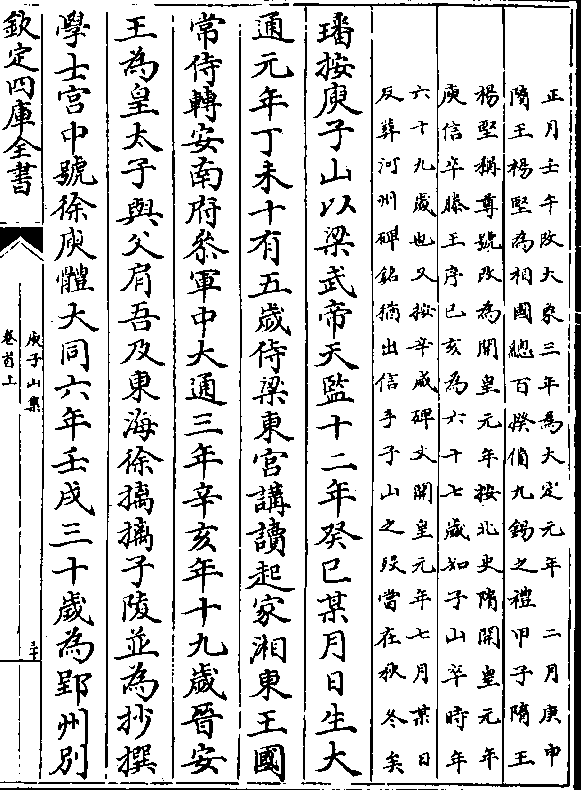 正月壬午改大象三年為大定元年　二月庚申
隋王楊堅為相國總百揆備九錫之禮甲子隋王
楊堅稱尊號改為開皇元年按北史隋開皇元年
庾信卒滕王序已亥為六十七歲如子山卒時年
六十九歲也又按辛威碑文開皇元年七月某日
反葬河州碑銘猶出信手子山之歿當在秋冬矣
璠按庾子山以梁武帝天監十二年癸巳某月日生大
通元年丁未十有五歲侍梁東宮講讀起家湘東王國
常侍轉安南府叅軍中大通三年辛亥年十九歲晉安
王為皇太子與父肩吾及東海徐摛摛子陵並為抄撰
學士宮中號徐庾體大同六年壬戌三十歲為郢州別
欽定四庫全書
庾子山集
卷首上